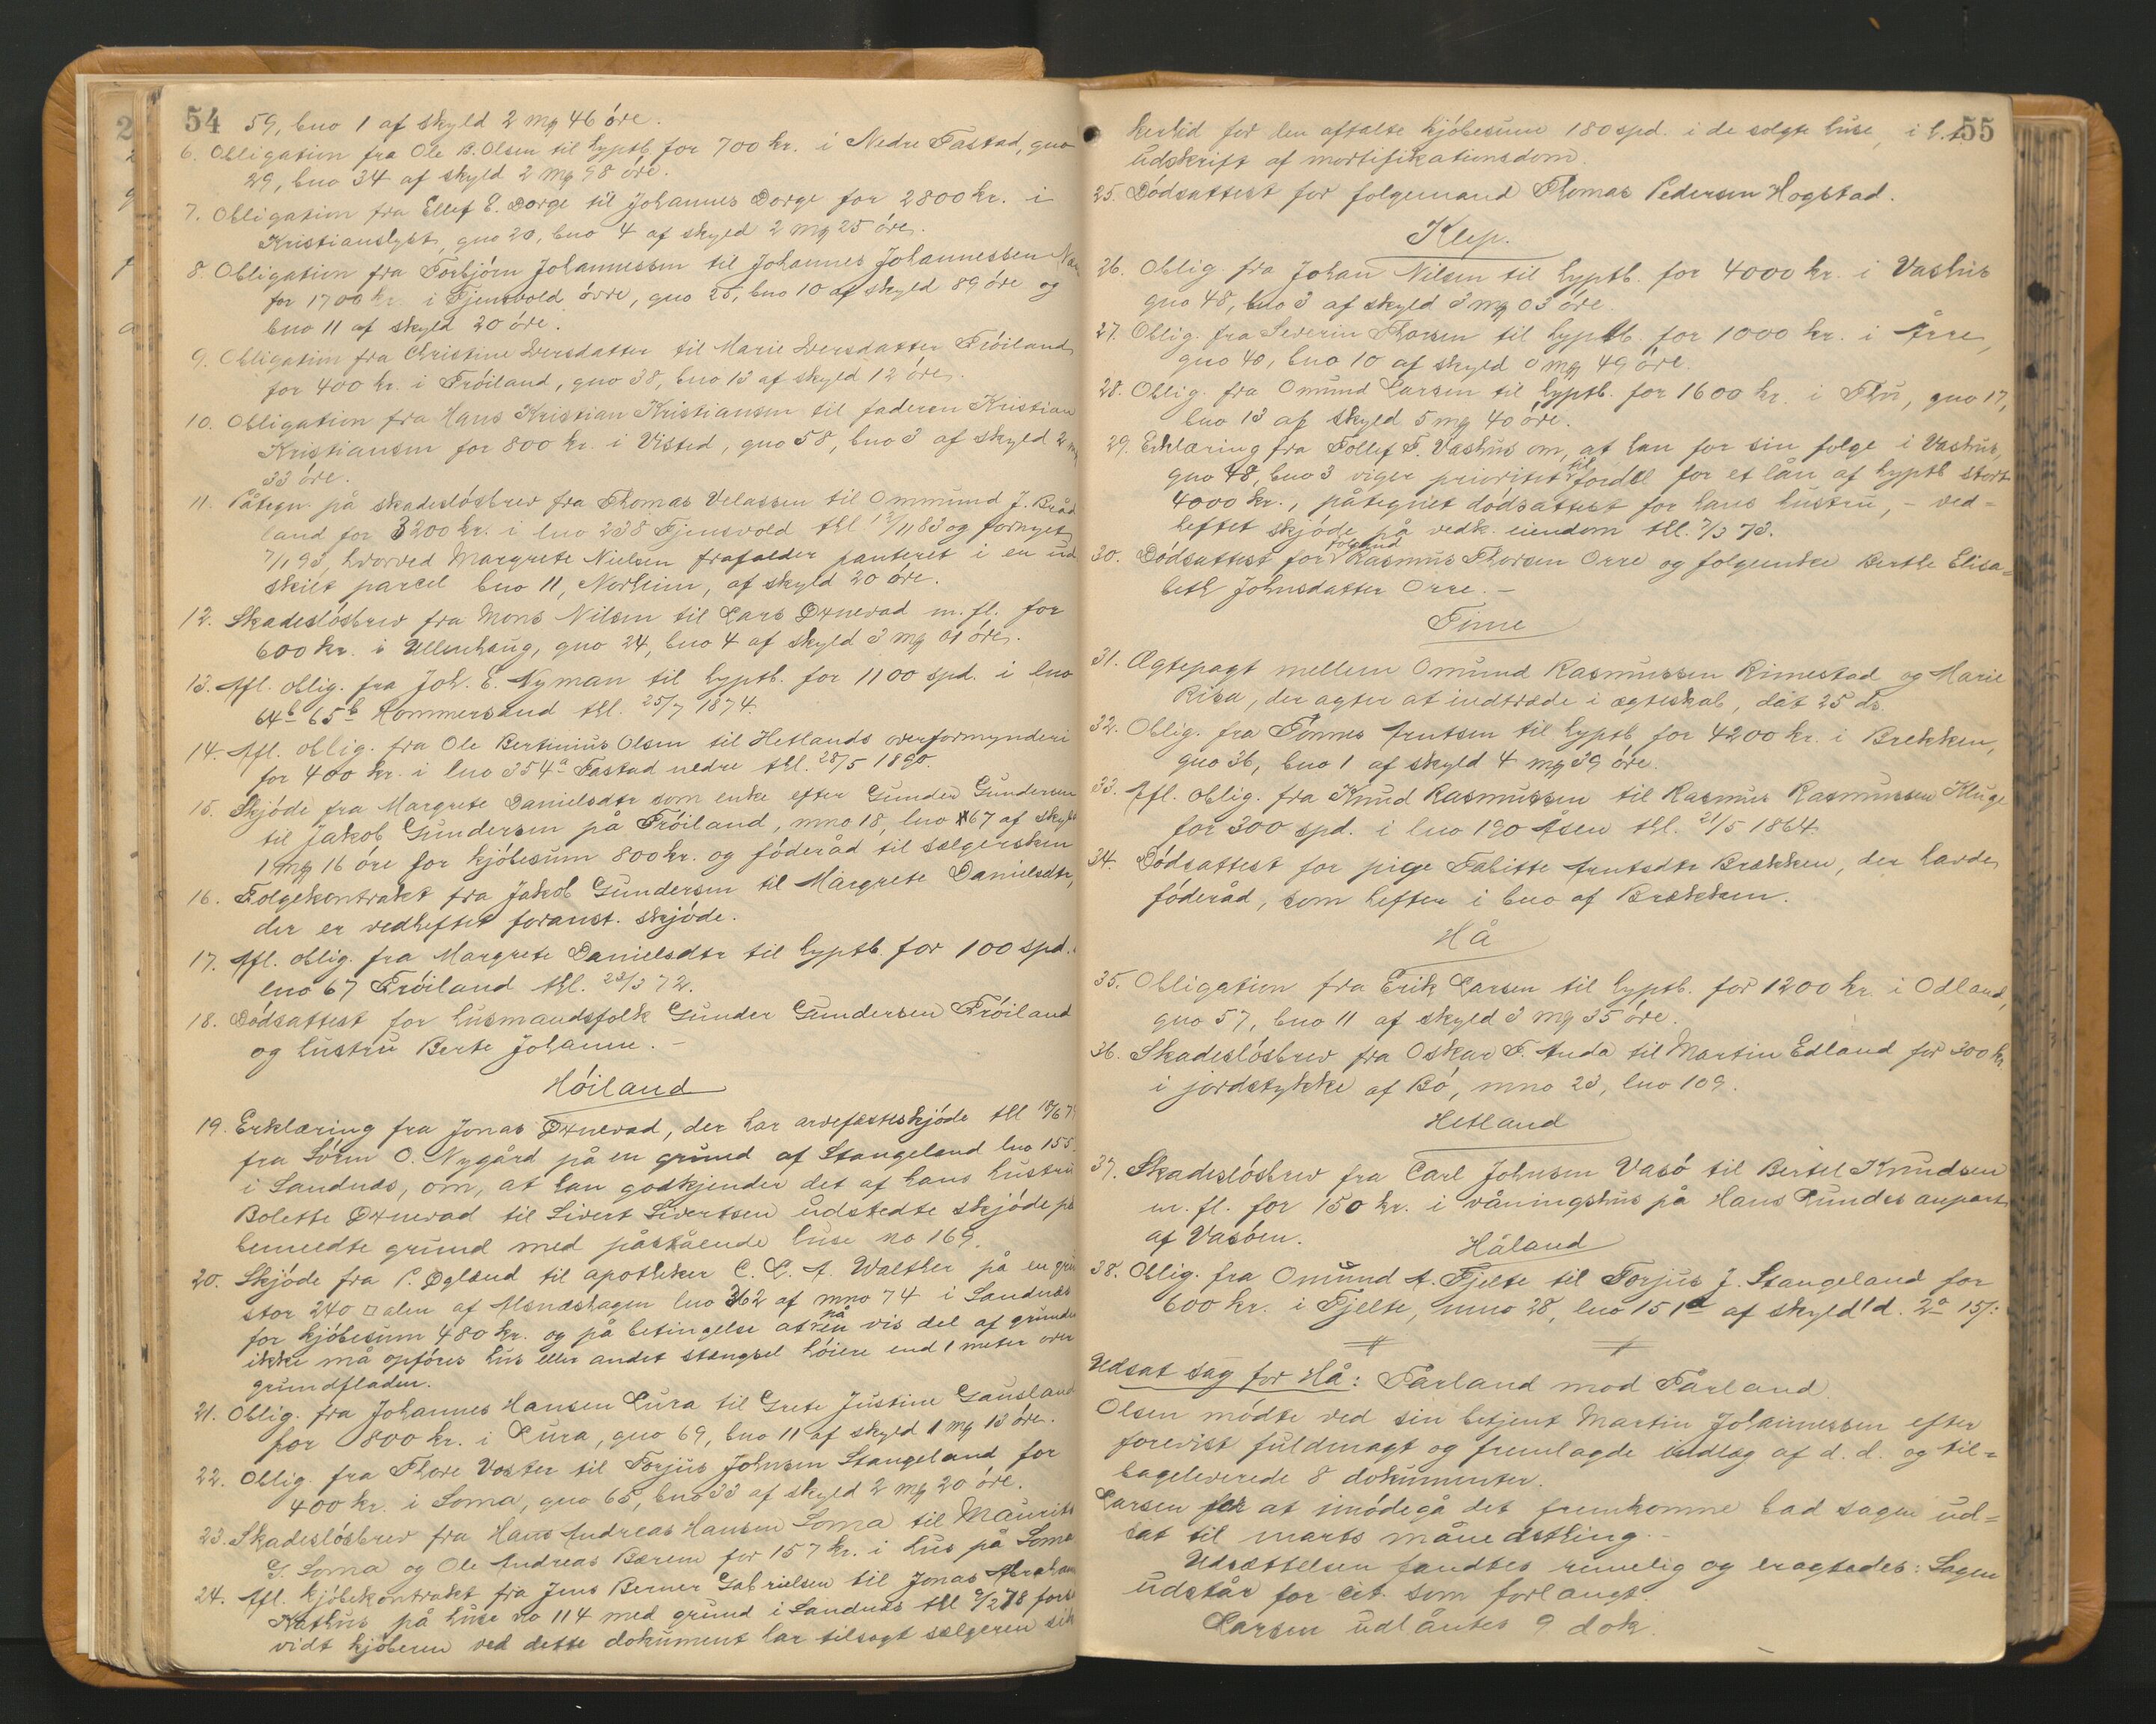 54 59, bno 1 af skyld 2 mq 46 öre.
6. Obligation fra Ole B. Olsen til hyptb. for 700 kr. i Nedre Tastad, gno
29, bno 34 af skyld 2 mq 98 öre.
7. Obligation fra Ellef E. Dorge til Johannes Dorge for 2800 kr. i
Kristianslyst, gno 20, bno 4 af skyld 2 mq 25 öre.
8. Obligation fra Torbjörn Johannessen til Johannes Johannessen
for 1700 kr. i Tjensvold övre, gno 25, bno 10 af skyld 89 öre og
bno 11 af skyld 20 öre.
9. Obligation fra Christine Iversdatter til Marie Iversdatter Fröiland
for 400 kr. i Fröiland, gno 38, bno 13 af skyld 12 öre.
10. Obligation fra Hans Kristian Kristiansen til faderen Kristian
Kristiansen for 800 kr. i Visted, gno 58, bno 3 af skyld 2 mq
33 öre.
11. Påtegn. på skadeslösbrev fra Thomas Velassen til Ommund J. Bråd
land for 3200 kr. i lno 238 Tjensvold thl. 12/11 83 og fornyet
7/1 93, hvorved Margrete Nielsen frafalder panteret i en ud
skilt parcel bno 11, Norheim, af skyld 20 öre.
12. Skadeslösbrev fra Mons Nilsen til Lars Öxnevad m. fl. for
600 kr. i Ullenhaug, gno 24, bno 4 af skyld 3 mq 01 öre.
13. Afl. oblig. fra Joh. E. Nyman til hyptb. for 1100 spd. i lno
64b 65b Hommersand thl. 25/7 1874.
14. Afl. oblig. fra Ole Bertinius Olsen til Hetlands overformynderi
for 400 kr. i lno 354a Tastad nedre thl. 28/5 1890.
15. Skjöde fra Margrete Danielsdtr som enke efter Gunder Gundersen
til Jakob Gundersen på Fröiland, mno 18, lno 67 af skyld
1 mq 16 öre for kjöbesum 800 kr. og föderåd til sælgersken
16. Folgekontrakt fra Jakob Gundersen til Margrete Danielsdtr,
der er vedheftet foranst. skjöde.
17. Afl. oblig. fra Margrete Danielsdtr til hyptb. for 100 spd. i
lno 67 Fröiland thl. 23/3 72.
18. Dödsattest for husmandsfolk Gunder Gundersen Fröiland
og hustru Berte Johanne. –
Höiland
19. Erklæring fra Jonas Öxnevad, der har arvefesteskjöde thl 18/6 7
fra Sören O. Nygård på en grund af Stangeland lno 155
i Sandnes, om, at han godkjender det af hans hustru
Bolette Öxnevad til Sivert Sivertsen udstedte skjöde på
bemeldte grund med påstående huse no 169.
20. Skjöde fra P. Ögland til apotheker C. L. A. Walther på en gru
stor 240 □ alen af lno 262 af mno 74 i Sandnes
for kjöbesum 480 kr. og på betingelse at på en vis del af grunde
ikke må opföres hus eller andet stængsel höiere end 1 meter over
grundfladen.
21. Oblig. fra Johannes Hansen Lura til Grete Justine Gausland
for 800 kr. i Lura, gno 69, bno 11 af skyld 1 mq 13 öre.
22. Oblig. fra Thore Voster til Torjus Johnsen Stangeland for
400 kr. i Soma, gno 65, bno 33 af skyld 2 mq 20 öre.
23. Skadeslösbrev fra Hans Andreas Hansen Soma til Maurits
G. Soma og Ole Andreas Bærem for 157 kr. i hus på Soma
24. Afl. kjöbekontrakt fra Jens Berner Gabrielsen til Jonas Abraham
på huse no 114 med grund i Sandnes thl 9/2 78 for
vidt kjöberen ved dette dokument har tilsagt sælgeren sik
55
kerhed for den aftalte kjöbesum 180 spd. i de solgte huse, i h. t.
udskrift af mortifikationsdom.
25. Dödsattest for folgemand Thomas Pedersen Hogstad.
Klep.
26. Oblig. fra Johan Nilsen til hyptb. for 4000 kr. i Vashus
gno 48, bno 3 af skyld 3 mq 03 öre.
27. Oblig. fra Severin Thorsen til hyptb. for 1000 kr. i Årre,
gno 40, bno 10 af skyld 0 mq 49 öre.
28. Oblig. fra Omund Larsen til hyptb. for 1600 kr. i Thu, gno 17,
bno 13 af skyld 5 mq 40 öre.
29. Erklæring fra Tollef T. Vashus om, at han for sin folge i Vashus,
gno 48, bno 3 viger prioritet til fordel for et lån af hyptb stort
4000 kr., påtegnet dödsattest for hans hustru, – ved=
heftet skjöde på vedk. eiendom thl. 7/3 73.
30. Dödsattest for folgmd Rasmus Thorsen Orre og folgeenke Berthe Elisa=
beth Johnsdatter Orre. –
Time
31. Ægtepagt mellem Omund Rasmussen Rimestad og Marie
Risa, der agter at indtræde i ægteskab, dat 25 ds.
32. Oblig. fra Tönnes Arntsen til hyptb for 4200 kr. i Brekken,
gno 36, bno 1 af skyld 4 mq 39 öre.
33. Afl. oblig. fra Knud Rasmussen til Rasmus Rasmussen Kluge
for 300 spd. i lno 190 Åsen thl. 21/5 1864.
34. Dödsattest for pige Tabitte Arntsdtr Brekken, der havde
föderåd, som hefter i bno af Brekken.
Hå
35. Obligation fra Erik Larsen til hyptb. for 1200 kr. i Odland,
gno 57, bno 11 af skyld 3 mq 35 öre.
36. Skadeslösbrev fra Oskar T. Auda til Martin Edland for 300 kr
i jordstykke af Bö, mno 23, lno 109.
Hetland
37. Skadeslösbrev fra Carl Johnsen Vasö til Bertel Knudsen
m. fl. for 150 kr. i våningshus på Hans Lundes anpart
af Vasöen.
Håland
38. Oblig. fra Omund A. Tjelte til Torjus J. Stangeland for
600 kr. i Tjelte, mno 28, lno 151d af skyld 1 d. 2 o 15 s:
Udsat sag for Hå: Tårland mod Tårland.
Olsen mödte ved sin betjent Martin Johannessen efter
forevist fuldmagt og fremlagde indlæg af d. d. og til=
bageleverede 8 dokumenter.
Larsen for at imödegå det fremkomne bad sagen ud=
sat til marts månedsthing. –
Udsættelsen fandtes rimelig og eragtedes: Sagen
udstår for cit. som forlangt.
Larsen udlåntes 9 dok.